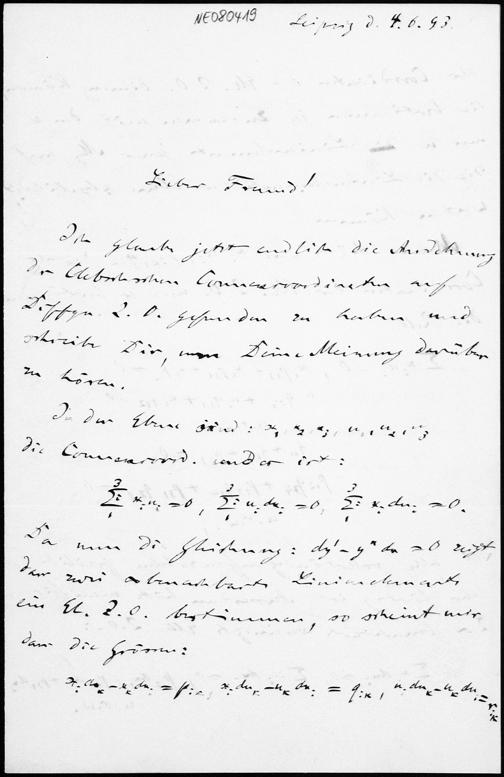 NE080419
Leipzig d. 4.6.93.
Lieber Freund!
Ich glaube jetzt endlich die Ausdehnung
der Clebschschen Connexcoordinaten auf
Diffgn. 2. O. gefunden zu haben und
schreibe Dir, um Deine Meinung darüber
zu hören.
In der Ebene sind: x₁ x₂ x₃, u₁, u₂, u₃
die Connexcoord. und es ist:
∑₁³ᵢ xᵢuᵢ = 0, ∑₁³ᵢ uᵢdxᵢ = 0, ∑₁³ᵢ xᵢduᵢ = 0.
Da nun die Gleichung: dy' − y'' dx = 0 zeigt,
dass zwei benachbarte Linienelemente
ein El. 2. O. bestimmen, so scheint mir
dass die Grössen:
xᵢdxₖ − xₖdxᵢ = pᵢₖ, xᵢduₖ − uₖdxᵢ = qᵢₖ, uᵢduₖ − uₖduᵢ = rᵢₖ